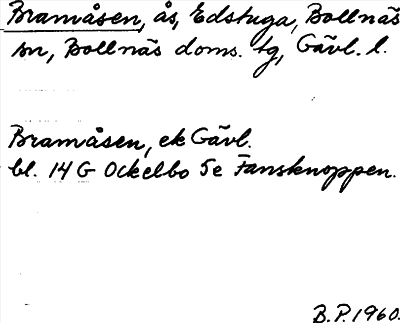 Bramåsen, ås, Edstuga, Bollnäs
sn, Bollnäs doms. tg, Gävl. l.
Bramåsen, ek Gävl.
bl. 14 G Ockelbo 5e Fansknoppen.
B.P. 1960.